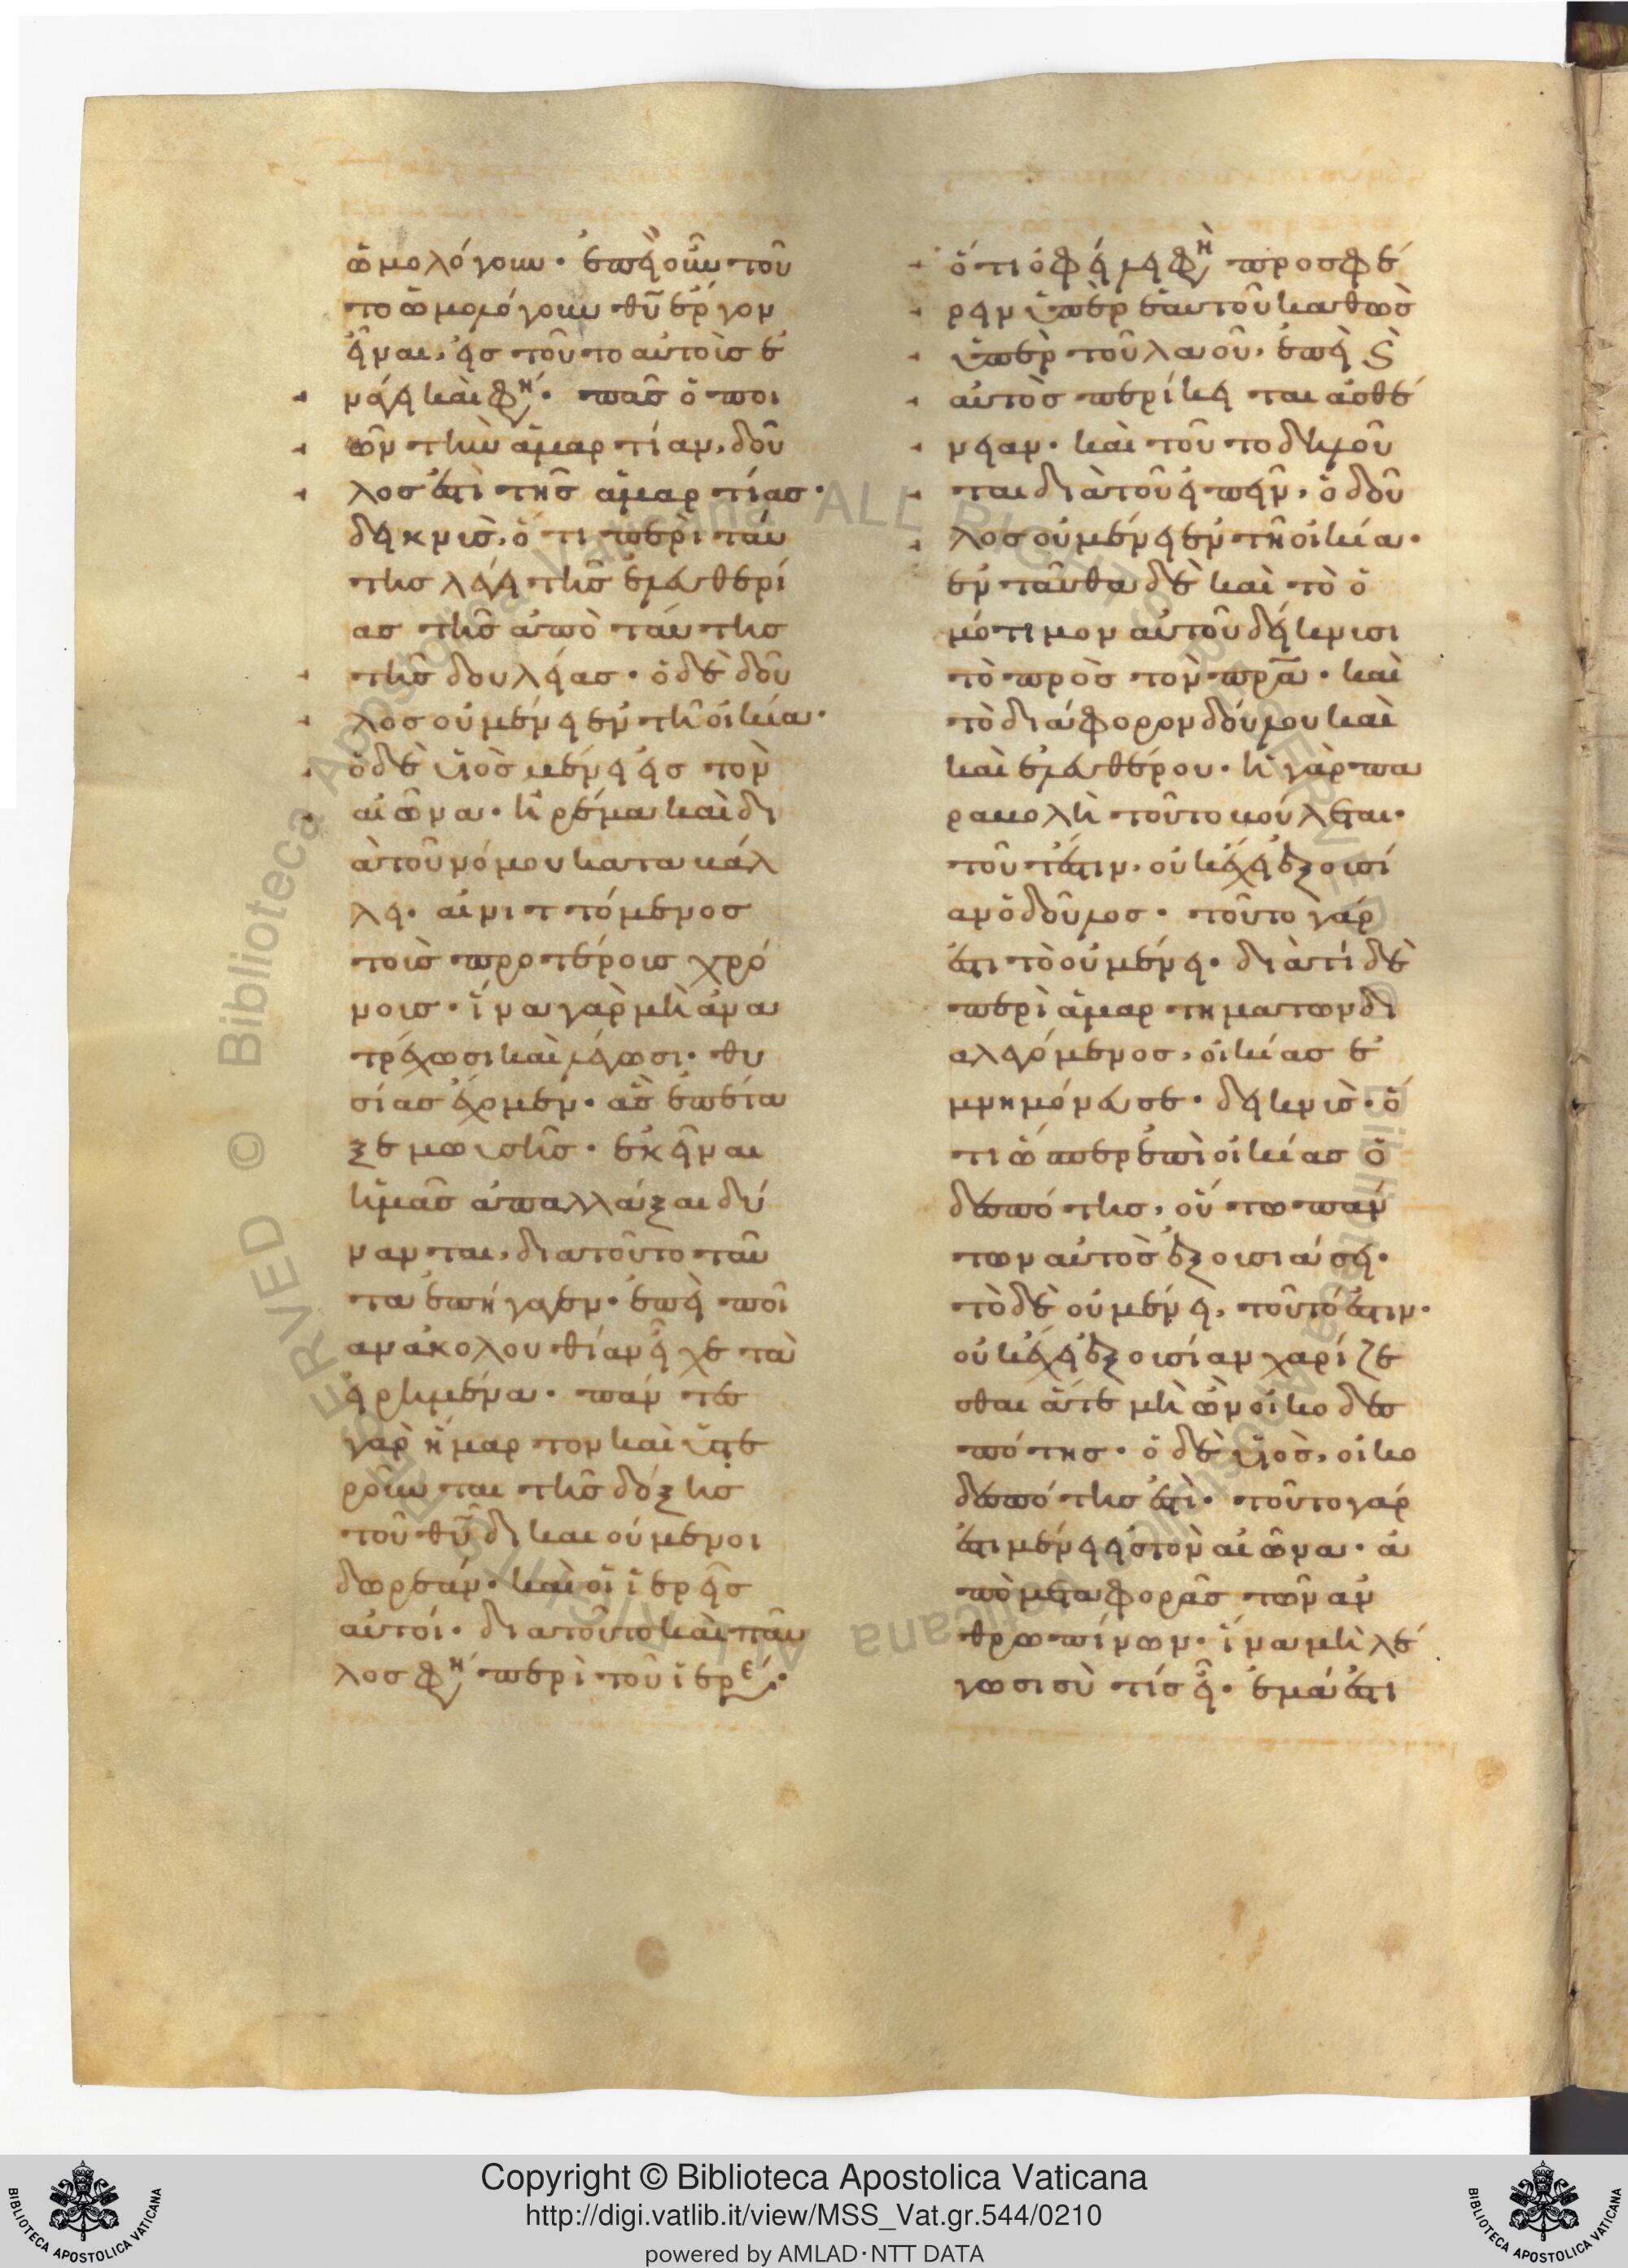 ὡμολόγουν· ἐπεὶ οὖν τοῦ
το ὡμολόγουν θῦ ἔργον
εἶναι, εἰς τοῦτο αὐτοὺς ἐ
νάγει καὶ φη· πᾶς ὁ ποι
ῶν τὴν ἁμαρτίαν, δοῦ
λος ἐστὶ τῆς ἁμαρτίας·
δεικνὺς, ὅτι περὶ ταύ
της λέγει τῆς ἐλευθερί
ας τῆς ἀπὸ ταύτης
τῆς δουλείας· ὁ δὲ δοῦ
λος οὐ μένει ἐν τῆ οἰκία·
ὁ δὲ υἱὸς μένει εἰς τὸν
αἰῶνα· ἠρέμα καὶ δι
ὰ τοῦ νόμου καταβάλ
λει· αἰνιττόμενος
τοὺς προτέρους χρό
νους· ἵνα γὰρ μὴ ἀνα
τρέχωσι καὶ λέγωσι· θυ
σίας ἔχομεν· ἃς ἐπέτα
ξε μωυσῆς· ἐκεῖναι
ἡμᾶς ἀπαλλάξαι δύ
νανται, διατοῦτο ταῦ
τα ἐπήγαγεν· ἐπεὶ ποί
αν ἀκολουθίαν εἶχε τὰ
εἰρημένα· πάντες
γὰρ ἥμαρτον καὶ ὑστε
ροῦνται τῆς δόξης
τοῦ θῦ δικαιούμενοι
δωρεάν· καὶ οἱ ἱερεῖς
αὐτοί· διατοῦτο καὶ παῦ
λος φη περὶ τοῦ ἱερέ·
ὅτι ὀφείλει φη προσφέ
ρειν ὑπὲρ ἑαυτοῦ καθὼς
ὑπὲρ τοῦ λαοῦ, ἐπεὶ Ϛ
αὐτὸς περίκειται ἀσθέ
νειαν· καὶ τοῦτο δηλοῦ
ται διὰ τοῦ εἰπεῖν, ὁ δοῦ
λος οὐ μένει ἐν τῆ οἰκία·
ἐνταῦθα δὲ καὶ τὸ ὁ
μότιμον αὐτοῦ δείκνυσι
τὸ πρὸς τὸν πρᾶ· καὶ
τὸ διάφορον δούλου καὶ
καὶ ἐλευθέρου· ἡ γὰρ πα
ραβολὴ τοῦτο βούλεται·
τοῦτέστιν, οὐκ ἔχει ἐξουσί
αν ὁ δοῦλος· τοῦτο γάρ
ἐστι τὸ οὐ μένει· διὰ τί δὲ
περὶ ἁμαρτηματων δι
αλεγόμενος, οἰκίας ἐ
μνημόνευσε· δεικνὺς· ὅ
τι ὥσπερ ἐπὶ οἰκίας ὁ
δεσπότης, οὕτω παν
των αὐτὸς ἐξουσιάσει·
τὸ δὲ οὐ μένει, τοῦτό ἐστιν·
οὐκ ἔχει ἐξουσίαν χαρίζε
σθαι ἅτε μὴ ὢν οἰκοδεσ
πότης· ὁ δὲ υἱὸς, οἰκο
δεσπότης ἐστὶ· τοῦτο γάρ
ἐστι μένει εἰς τὸν αἰῶνα· ἀ
πὸ μεταφορᾶς τῶν ἀν
θρωπίνων· ἵνα μὴ λέ
γωσι σὺ τίς εἶ· ἐμά ἐστι
Copyright © Biblioteca Apostolica Vaticana
http://digi.vatlib.it/view/MSS_Vat.gr.544/0210
powered by AMLAD·NTT DATA